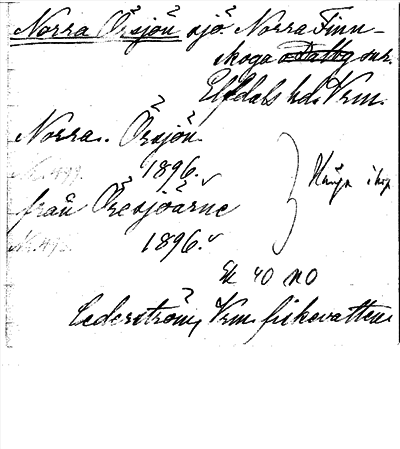 Norra Örsjön sjö. Norra Finn-
skoga o Dalby snr.
Elfdals hd. Vrm.
Norra. Örsjön.
1896.
från Öresjöarne
1896.
Hänga ihop
Ek 40 NO
Cederström, Vrm. fiskevatten